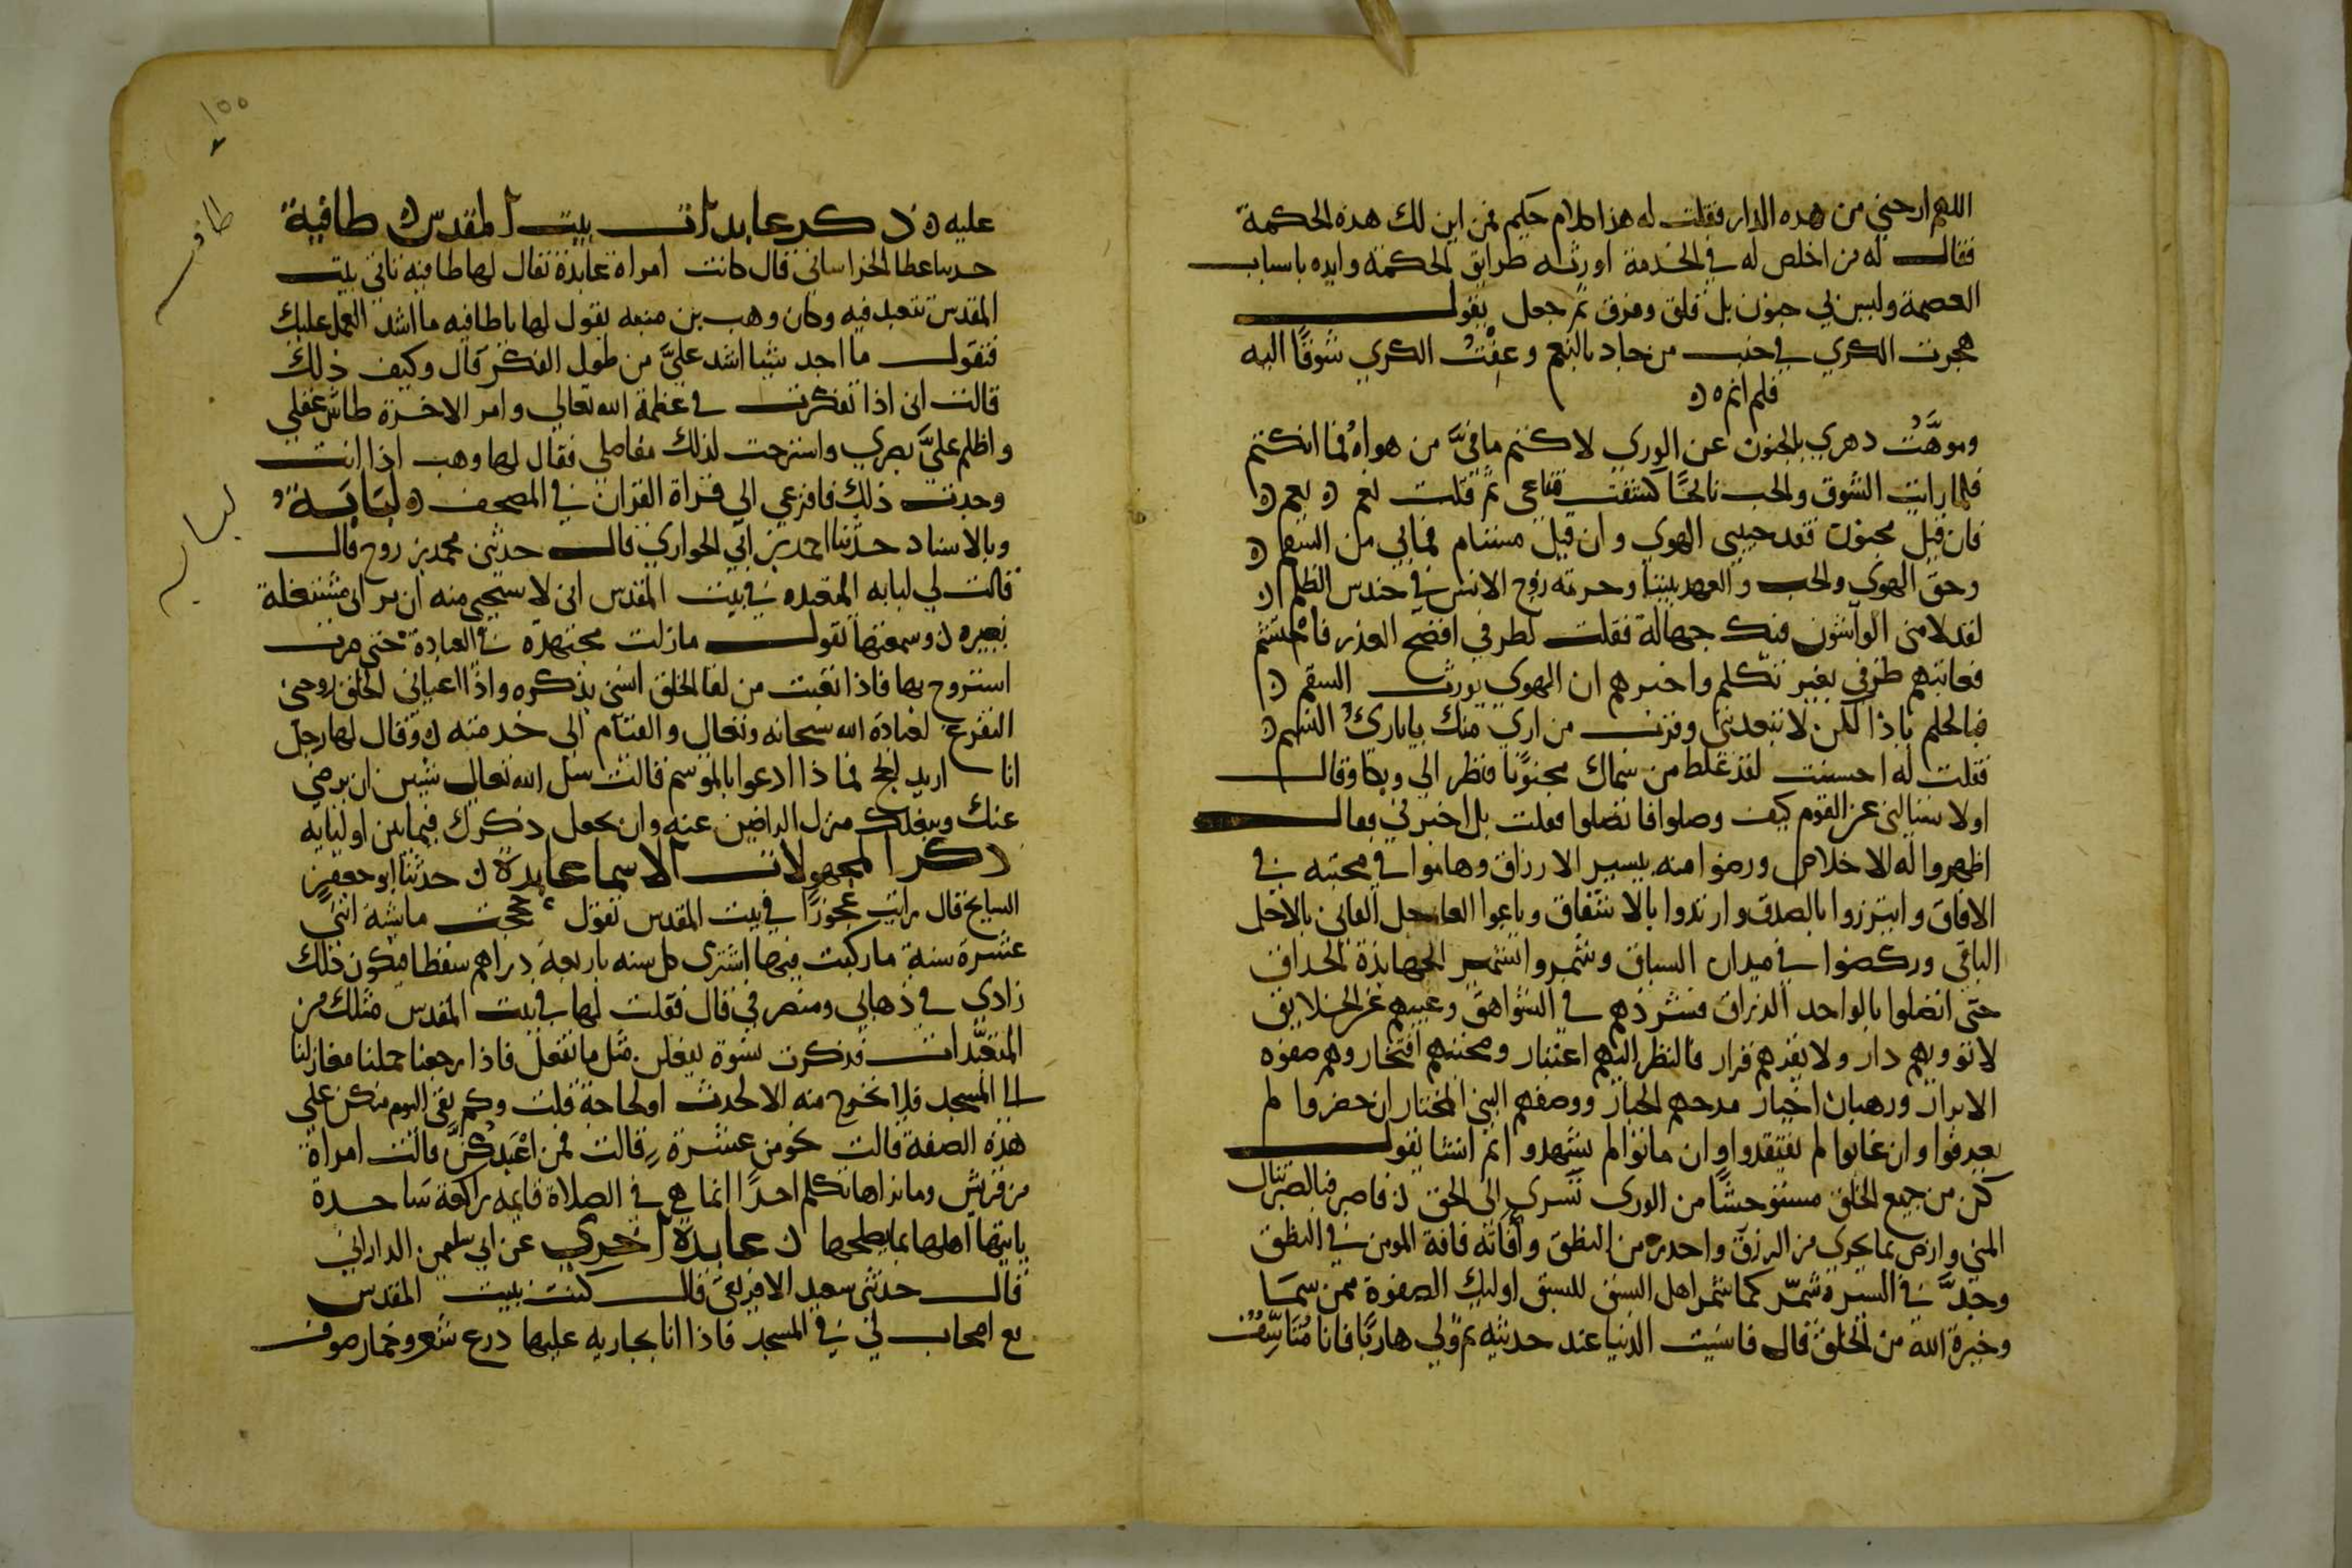 اللهم ارحني من هذه الدار فقلت له هذا كلام حكيم فمن اين لك هذه الحكمة
فقال له من اخلص له في الخدمة اورثه طرايق الحكمة وايده باسباب
العصمة وليس بي جنون بل قلق وفرق ثم جعل يقول
هجرت الكري في حب من جاد بالنعم وعفت الكري شوقا اليه
فلم انم
وموهت دهري بالجنون عن الوري لاكتم ما في من هواه فما انكتم
فلما رايت الشوق والحب بائحا كشفت قناعي ثم قلت نعم نعم
فان قيل مجنون فقد جنني الهوي وان قيل مسقام فما بي من السقم
وحق الهوي والحب والعهد بيننا وحرمة روح الانس في حندس الظلم
لقد لامني الواشون فيك جهالة فقلت لطرفي افضح العذر فاحتشم
فعاتبهم طرفي بغير تكلم واخبرهم ان الهوي يورث السقم
فبالحلم ياذا المن لا تبعدنني وقرب من اري منك يا باري النسم
فقلت له احسنت لقد غلط من سماك مجنونا فنظر الي وبكا وقال
اولا تسالني عن القوم كيف وصلوا فاتصلوا فقلت بل اخبرني فقال
اظهروا له الاخلاص ورضوا منه بيسير الارزاق وهاموا في محبته في
الافاق وابتزروا بالصدق وارتدوا بالاشفاق وباعوا العاجل الفاني بالاجل
الباقي وركضوا في ميدان السباق وشمروا تشمير الجهابذة الحذاق
حتى اتصلوا بالواحد الرزاق فشردهم في الشواهق وغيبهم عن الخلايق
لا تؤويهم دار ولا يقرهم قرار فالنظر اليهم اعتبار ومحبتهم افتخار وهم صفوة
الابرار ورهبان اخيار مدحهم الجبار ووصفهم النبي المختار ان حضروا لم
يعرفوا وان غابوا لم يفتقدوا وان ماتوا لم يشهدوا ثم انشا يقول
كن من جميع الخلق مستوحشا من الوري تسري الى الحق فاصبر فبالصبر تنال
المني وارض بما يجري من الرزق واحذر من النطق وآفاته فآفة المومن في النطق
وجد في السير وشمر كما شمر اهل السبق للسبق اوليك الصفوة ممن سما
وخيرة الله من الخلق قال فانسيت الدنيا عند حديثه ثم ولي هاربا فانا متاسف
١٥٥
عليه ذكر عابدات بيت المقدس طافية
حدثنا عطا الخراساني قال كانت امراة عابدة يقال لها طافيه تاتي بيت
المقدس تتعبد فيه وكان وهب بن منبه يقول لها يا طافيه ما اشد العمل عليك
فتقول ما اجد شيئا اشد علي من طول الفكر قال وكيف ذلك
قالت اني اذا تفكرت في عظمة الله تعالي وامر الاخرة طاش عقلي
واظلم علي بصري واسترخت لذلك مفاصلي فقال لها وهب اذا انت
وجدت ذلك فافزعي الي قراة القران في المصحف لبابة
وبالاسناد حدثنا احمد بن ابي الحواري قال حدثني محمد بن روح قال
قالت لي لبابه المتعبده في بيت المقدس اني لاستحيي منه ان يراني مشتغلة
بغيره وسمعتها تقول مازلت مجتهدة في العبادة حتي صرت
استروح بها فاذا تعبت من لقا الخلق انسني بذكره واذا اعياني الخلق روحني
التفرغ لعبادة الله سبحانه وتعالي والقيام الى خدمته وقال لها رجل
انا اريد الحج فماذا ادعوا بالموسم قالت سل الله تعالي شيين ان يرضي
عنك ويبلغك منزل الراضين عنه وان يجعل ذكرك فيما بين اوليايه
ذكر المجهولات الاسما عابدة حدثنا ابو جعفر
السايح قال رايت عجوزا في بيت المقدس تقول حججت ماشية اثنتي
عشرة سنة ما ركبت فيها اشتري كل سنه باربعة دراهم سفطا فيكون ذلك
زادي في ذهابي ومنصرفي قال فقلت لها في بيت المقدس مثلك من
المتعبدات فذكرت نسوة يفعلن مثل ما تفعل فاذا رجعنا حملنا مغازلنا
الى المسجد فلا نخرج منه الا لحدث او لحاجة قلت وكم بقي اليوم منكن علي
هذه الصفة قالت نحو من عشرة قالت فمن اعبدكن قالت امراة
من قريش وما نراها تكلم احدا انما هي في الصلاة قايمه راكعة ساجدة
ياتيها اهلها بما يصلحها عابدة اخري عن ابي سليمن الداراني
قال حدثني سعيد الافريقي قال كنت ببيت المقدس
مع اصحاب لي في المسجد فاذا انا بجاريه عليها درع شعر وخمار صوف
طافيه
لبابه